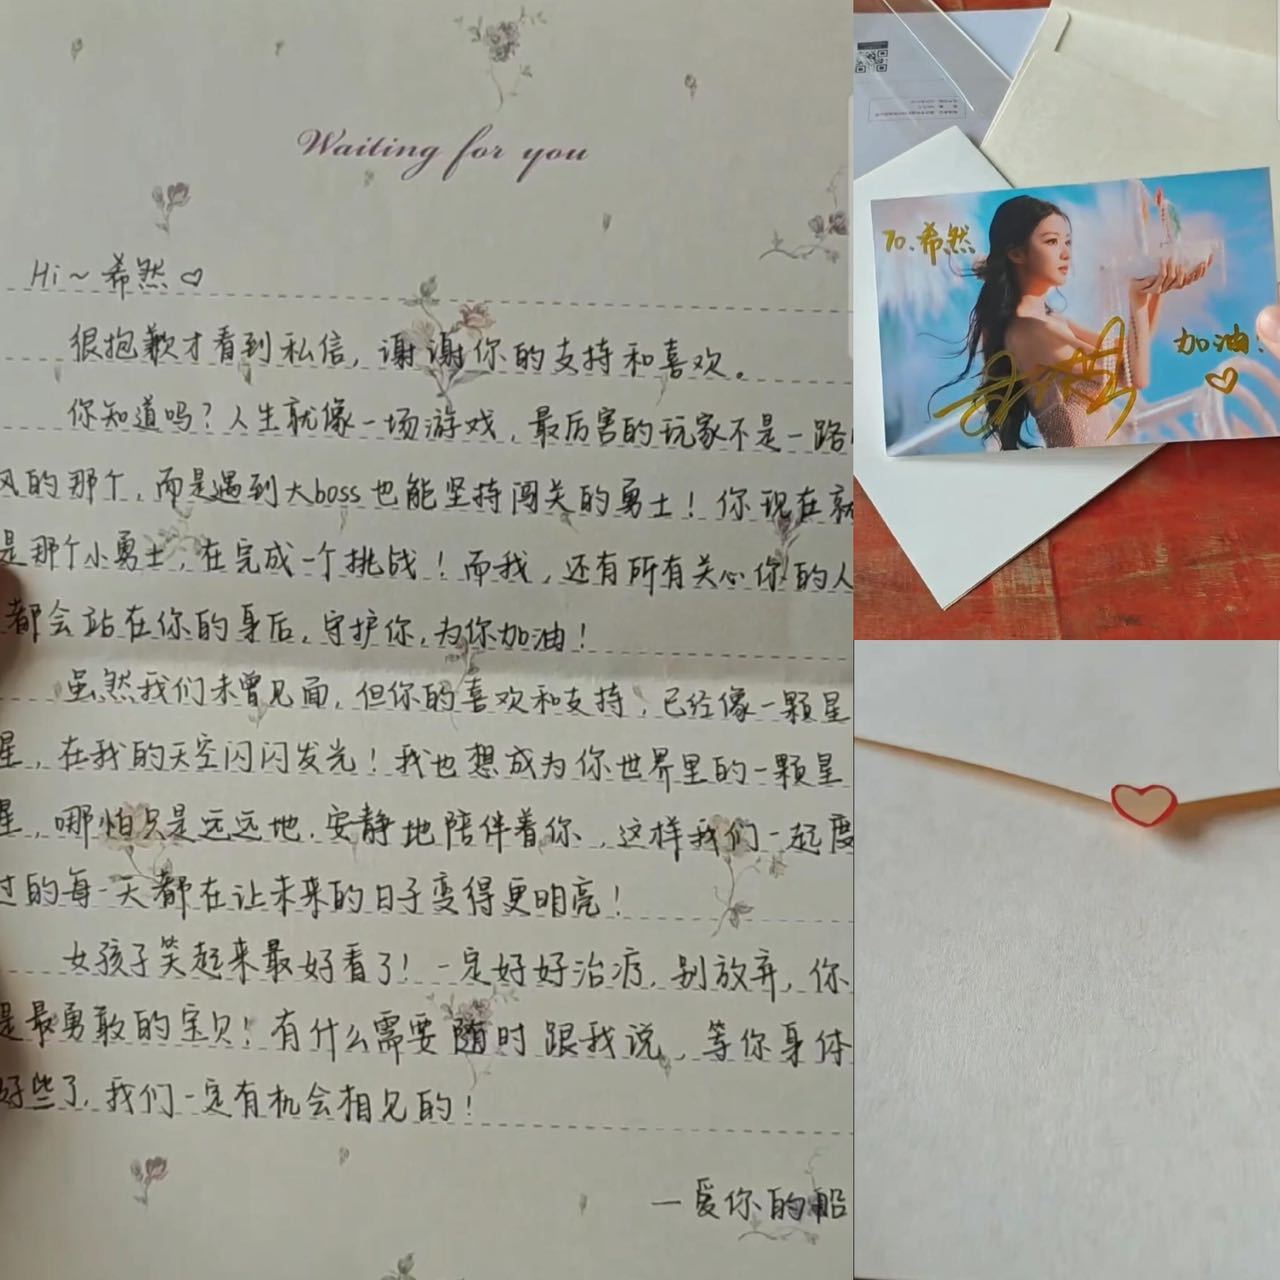 Waiting for you
Hi～希然♡
很抱歉才看到私信，谢谢你的支持和喜欢。
你知道吗？人生就像一场游戏，最厉害的玩家不是一路
风的那个，而是遇到大boss也能坚持闯关的勇士！你现在就
是那个小勇士，在完成一个挑战！而我，还有所有关心你的人
都会站在你的身后，守护你，为你加油！
虽然我们未曾见面，但你的喜欢和支持，已经像一颗星
星，在我的天空闪闪发光！我也想成为你世界里的一颗星
星，哪怕只是远远地，安静地陪伴着你，这样我们一起度
过的每一天都在让未来的日子变得更明亮！
女孩子笑起来最好看了！一定好好治疗，别放弃，你
是最勇敢的宝贝！有什么需要随时跟我说，等你身体
好些了，我们一定有机会相见的！
—爱你的船
TO.希然
加油！♡